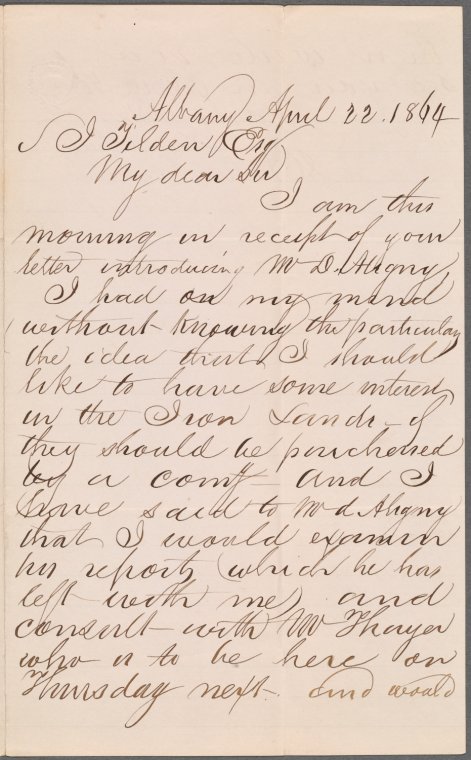 Albany April 22. 1864
S J Tilden Esq
My dear Sir
I am this
morning in receipt of your
letter introducing Mr D'Aligny
I had on my mind
without knowing the particulars
the idea that I should
like to have some interest
in the Iron Lands - if
they should be purchased
by a comy - and I
have said to Mr d'Aligny
that I would examin
his report (which he has
left with me) and
consult with Mr Thayer
who is to be here on
Thursday next. and would